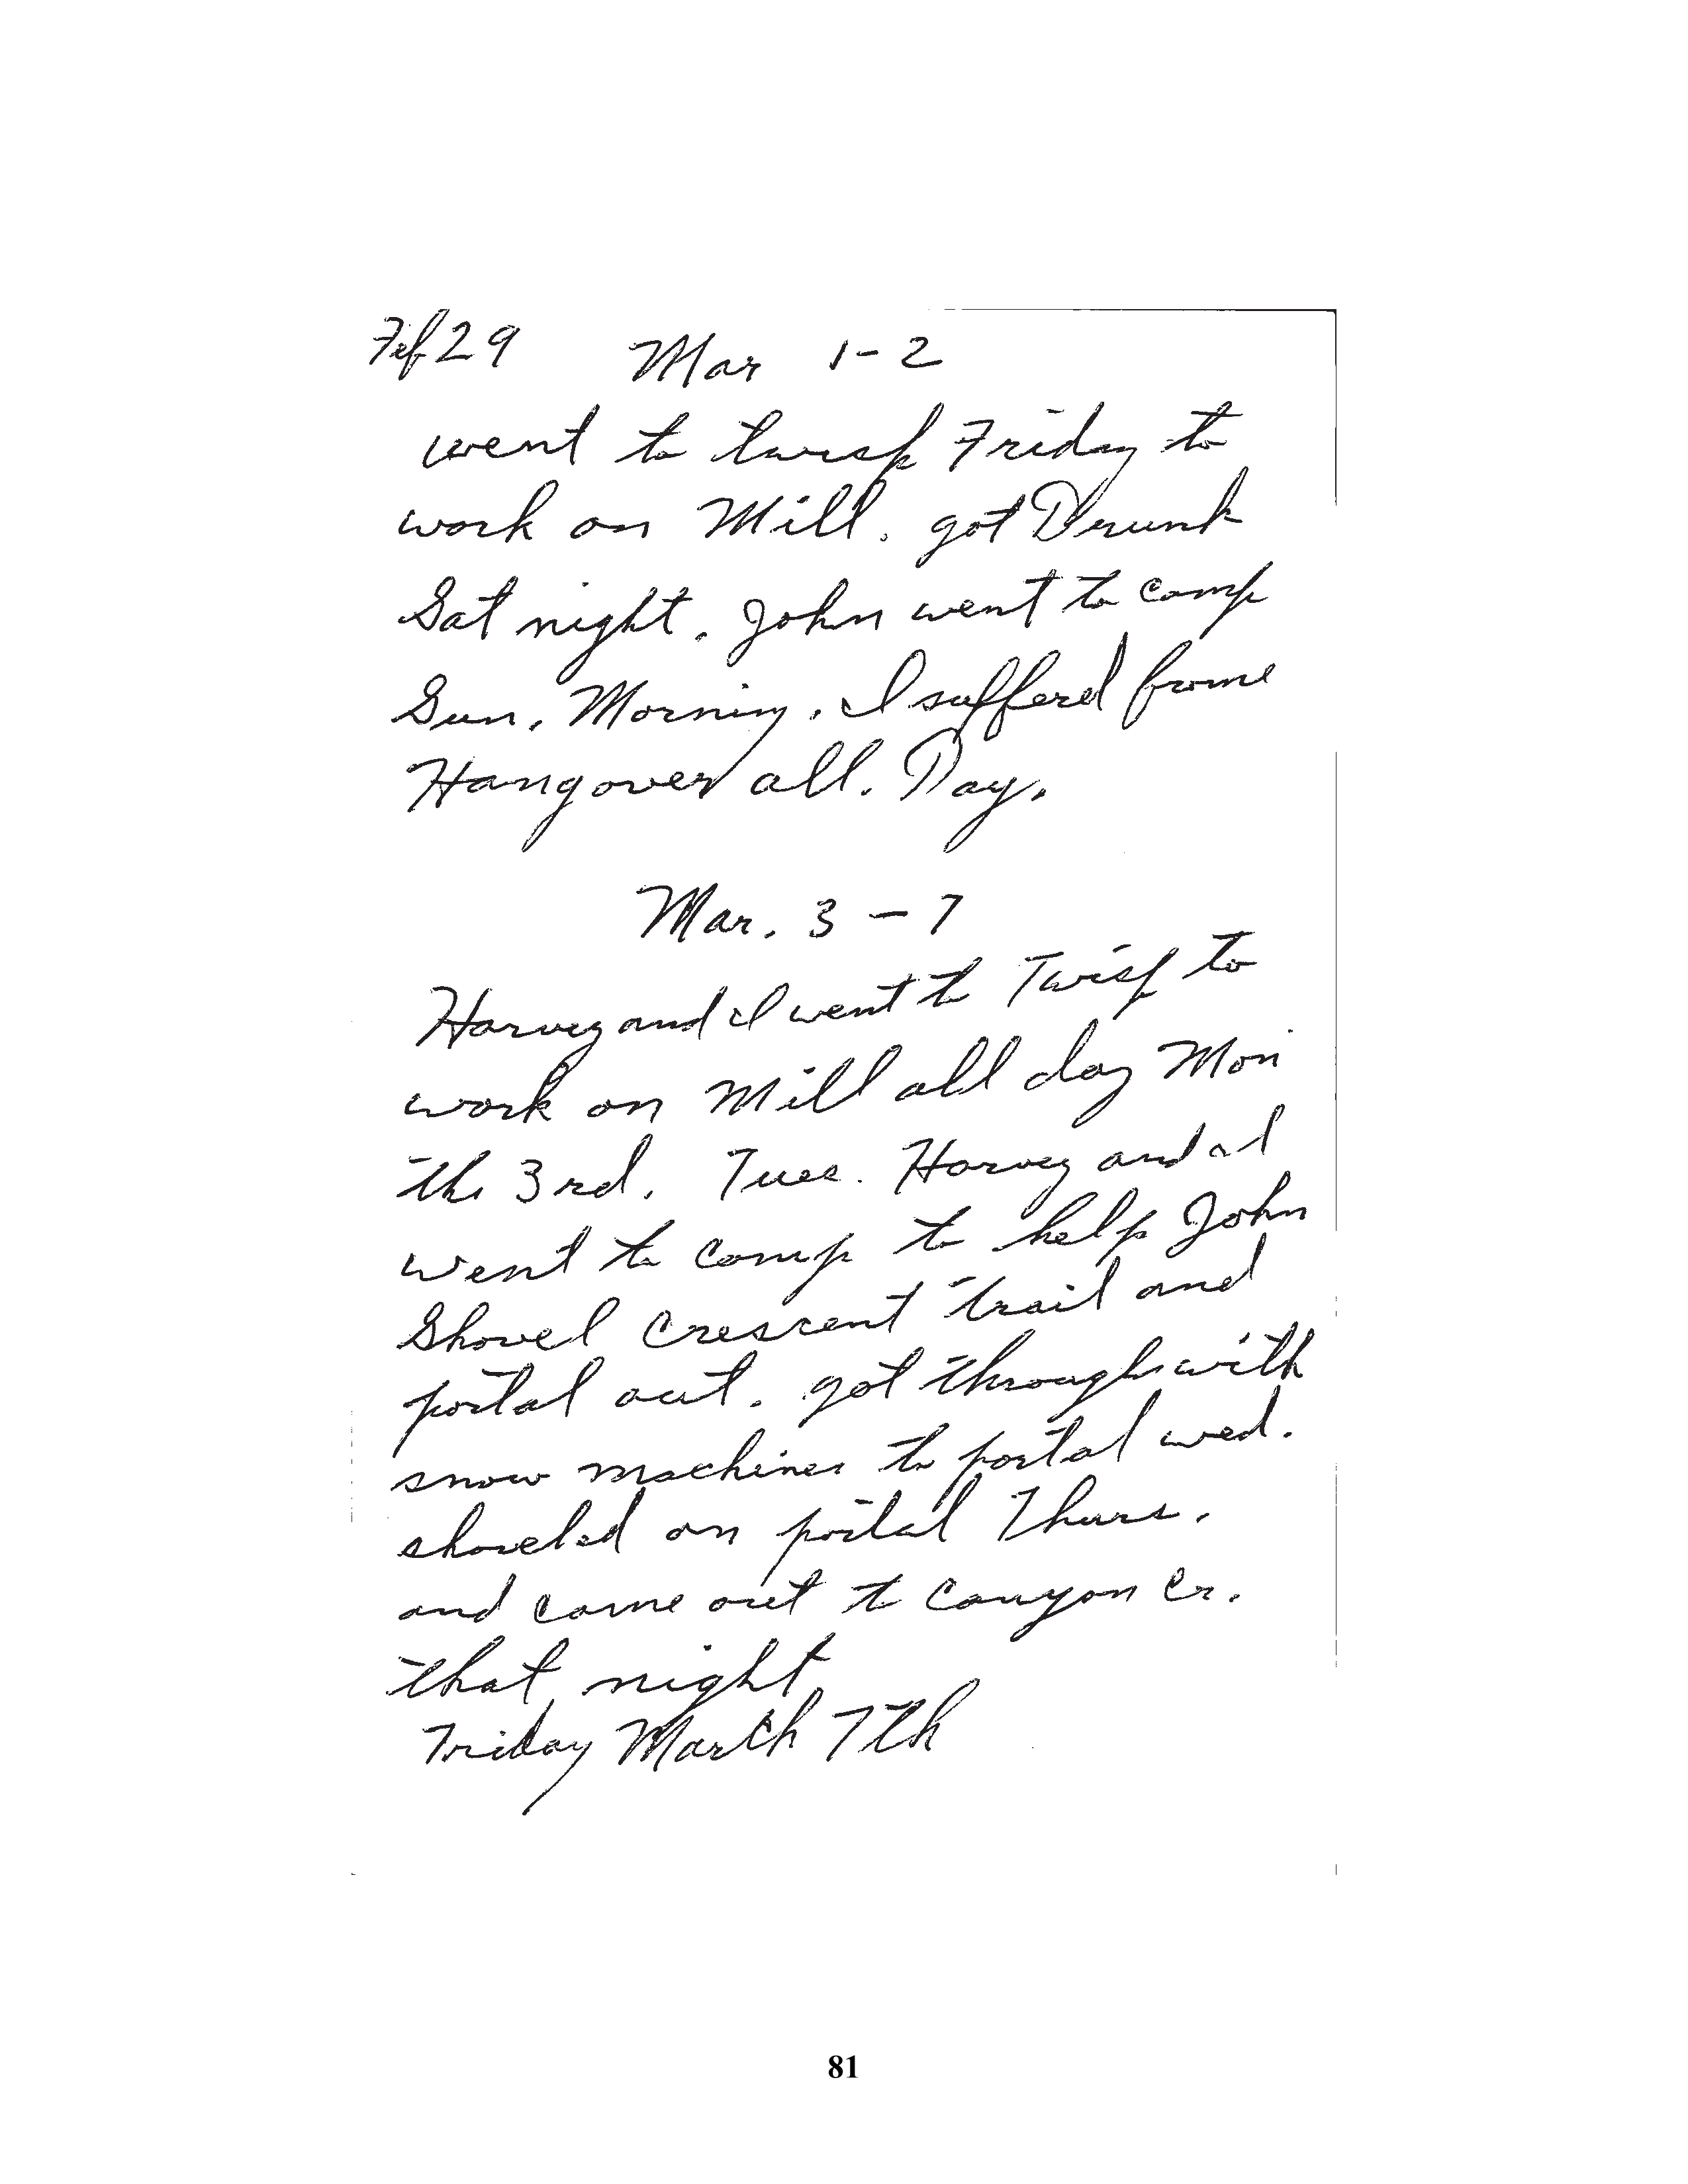 Feb 29 Mar 1-2
went to twisp Friday to
work on Mill. got Drunk
Sat night. John went to camp
Sun. Morning. I suffered frome
Hangover all. Day.
Mar. 3 - 7
Harvey and I went to Twisp to
work on Mill all day Mon
the 3rd. Tues. Harvey and I
went to camp to help John
Shovel Crescent trail and
portal out. got through with
snow machines to portal wed.
shoveled on portal Thurs.
and came out to Canyon Cr.
that night
Friday March 7th
81